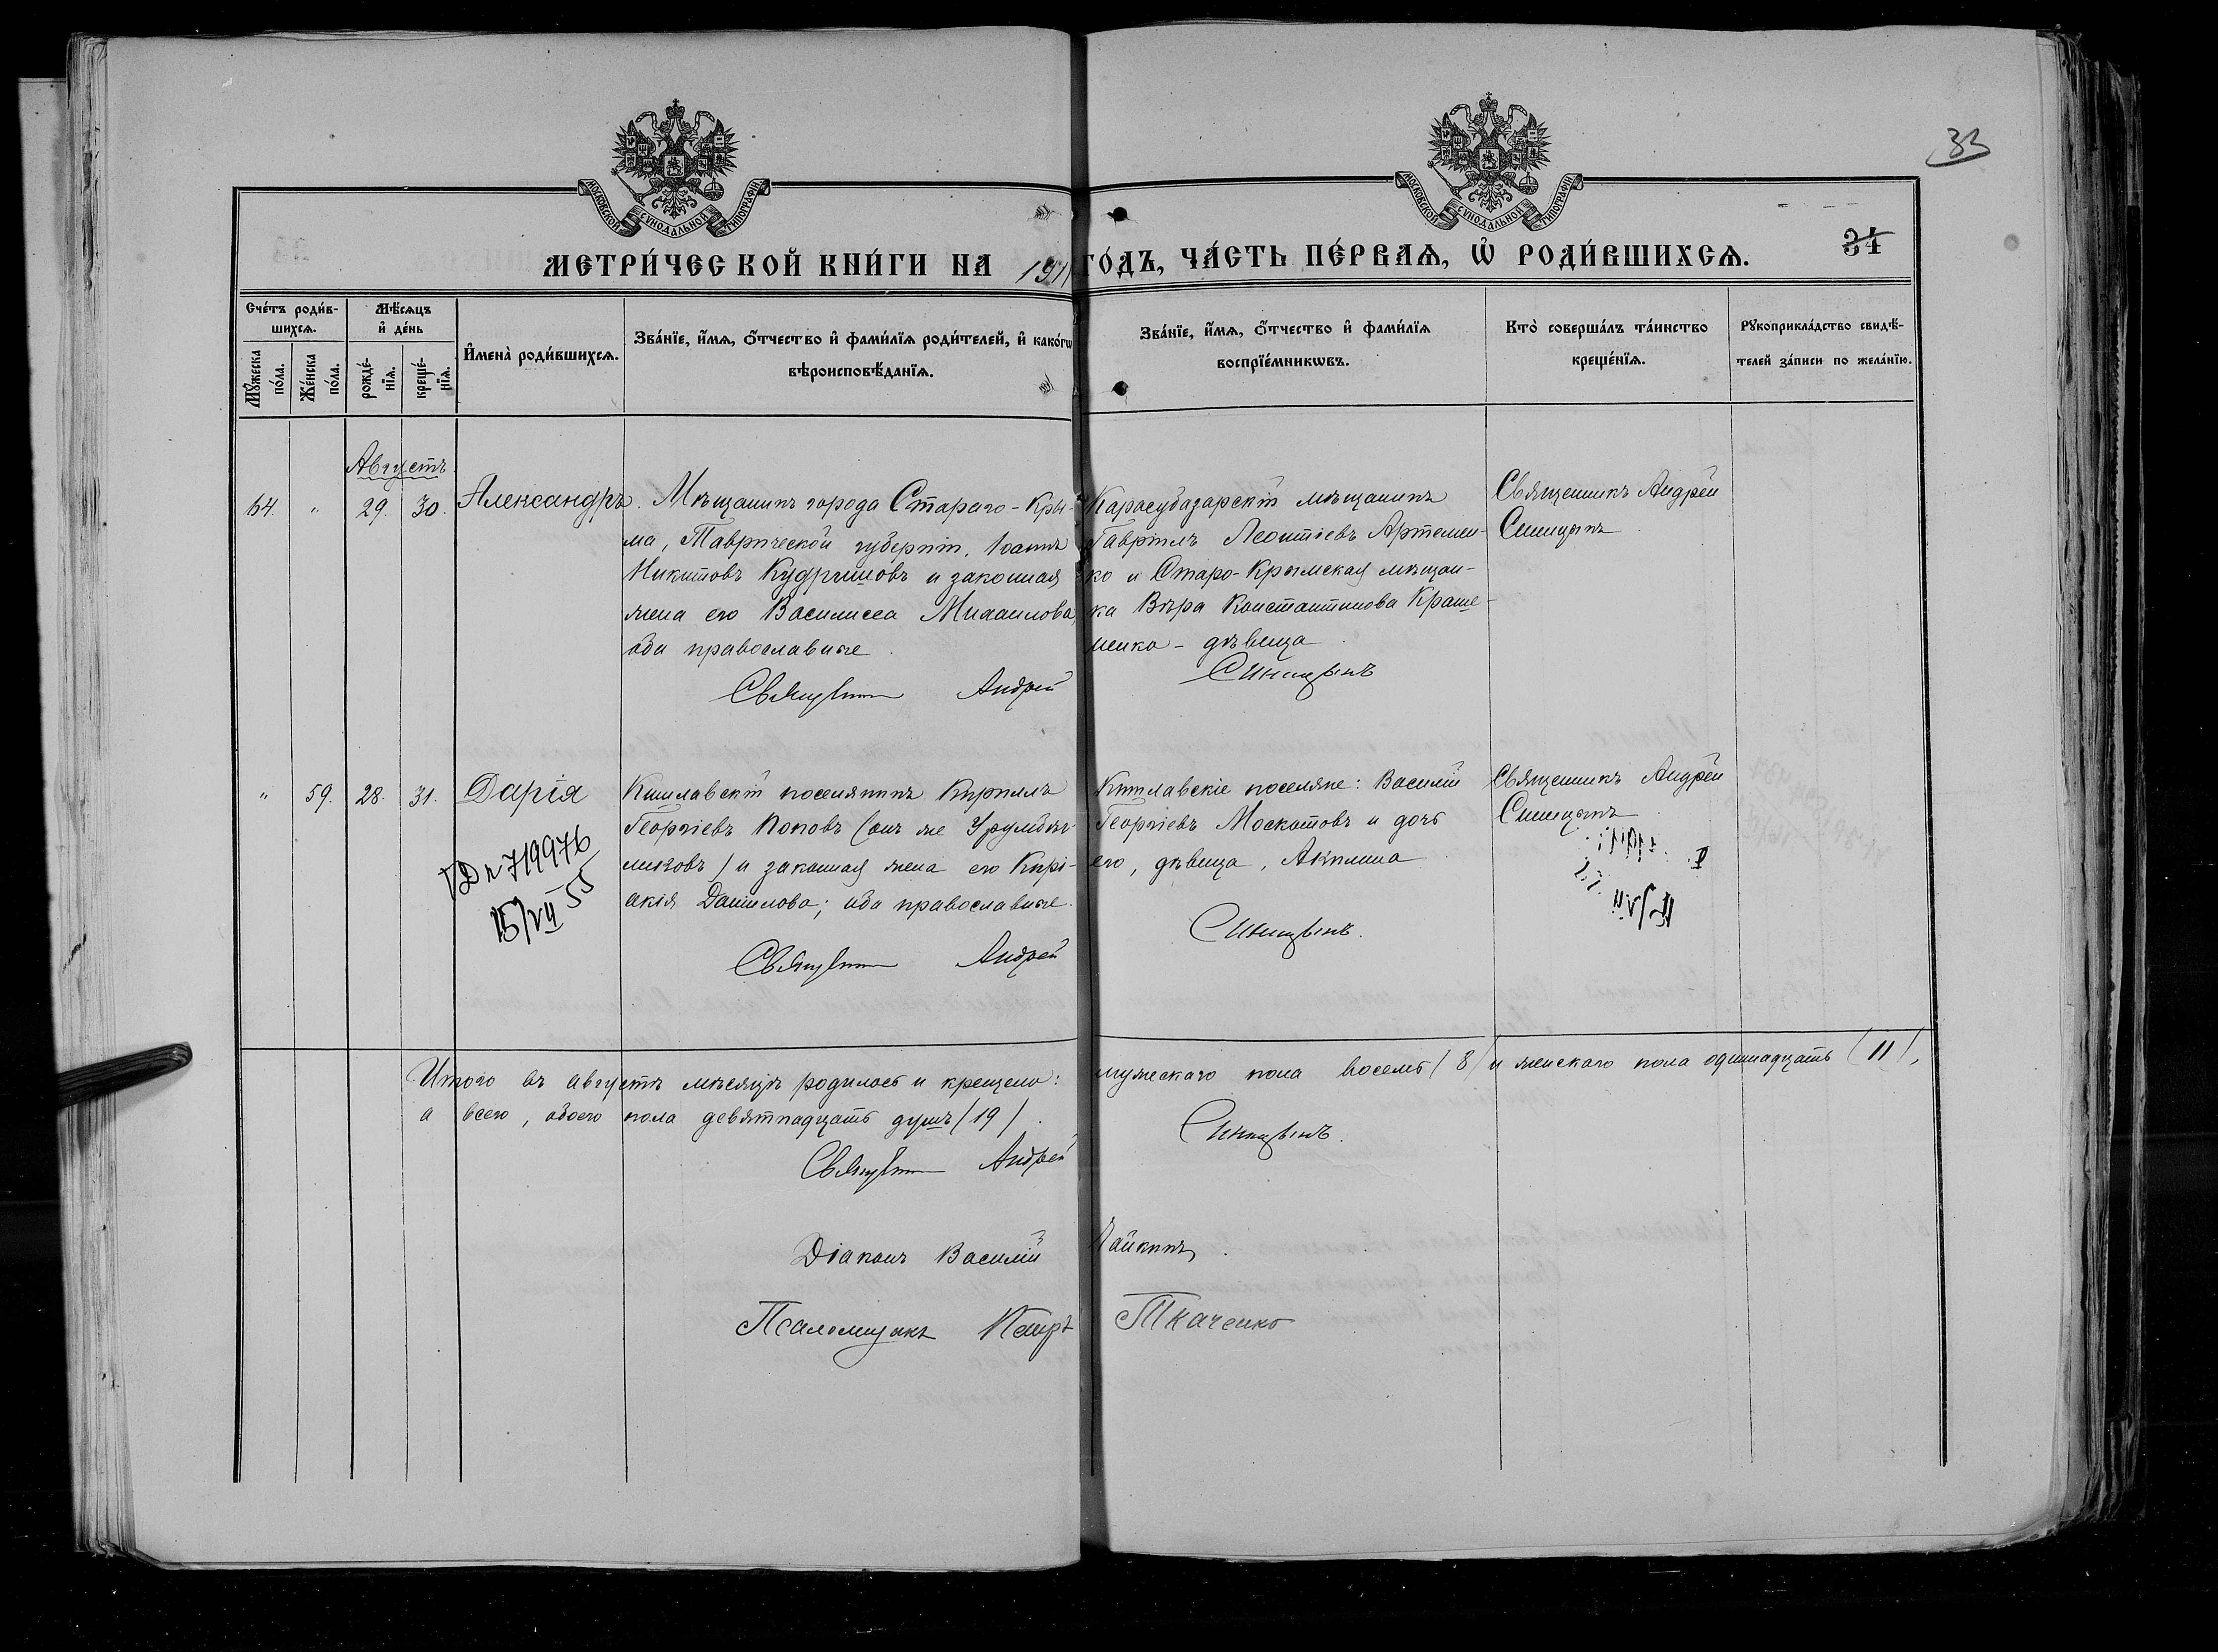 33
МОСКОВСКОЙ СѴНОДАЛЬНОЙ ТИПОГРАФІИ
МОСКОВСКОЙ СѴНОДАЛЬНОЙ ТИПОГРАФІИ
34
МЕТРИ́ЧЕСКОЙ КНИ́ГИ НА 191 ГО́ДЪ, ЧА́СТЬ ПЕ́РВАѦ, Ѡ҆ РОДИ́ВШИХСѦ.
Сче́тъ роди́в-
шихсѧ.
Мꙋ́жеска по́ла.
Же́нска по́ла.
Мѣ́сѧцъ и҆ де́нь
рожде́-нїѧ.
креще́-нїѧ.
И҆мена̀ роди́вшихсѧ.
Зва́нїе, и҆́мѧ, ѻ҆́тчество и҆ фами́лїѧ роди́телей, и҆ како́гѡ
вѣроисповѣ́данїѧ.
Зва́нїе, и҆́мѧ, ѻ҆́тчество и҆ фами́лїѧ
воспрїе́мникѡвъ.
Кто̀ соверша́лъ та́инство
креще́нїѧ.
Рꙋкоприкла́дство свидѣ́-
телей за́писи по жела́нїю.
Августъ
64. " 29. 30. Александръ.
Мѣщанинъ города Стараго-Кры-
ма, Таврической губерніи, Іоаннъ
Никитовъ Кудряшовъ и законная
жена его Василисса Михаилова,
оба православные.
Карасубазарскій мѣщанинъ
Гавріилъ Леонтіевъ Артемен-
ко и Старо-Крымская мѣщан-
ка Вѣра Константинова Краше-
нико - дѣвица.
Священникъ Андрей
Синицынъ.
Священникъ Андрей Синицынъ
" 59. 28. 31. Дарія
VD n 719976
15/VII 55
Кишлавскій поселянинъ Кириллъ
Георгіевъ Поповъ (онъ же Урумбек-
ликовъ) и законная жена его Кирі-
акія Данилова; оба православные.
Кишлавскіе поселяне: Василій
Георгіевъ Москотовъ и дочь
его, дѣвица, Акилина.
Священникъ Андрей
Синицынъ.
Священникъ Андрей Синицынъ.
Итого въ августѣ мѣсяцѣ родилось и крещено: мужескаго пола восемь (8) и женскаго пола одиннадцать (11),
а всего, обоего пола девятнадцать душъ (19).
Священникъ Андрей Синицынъ.
Діаконъ Василій
Псаломщикъ Петръ Ткаченко